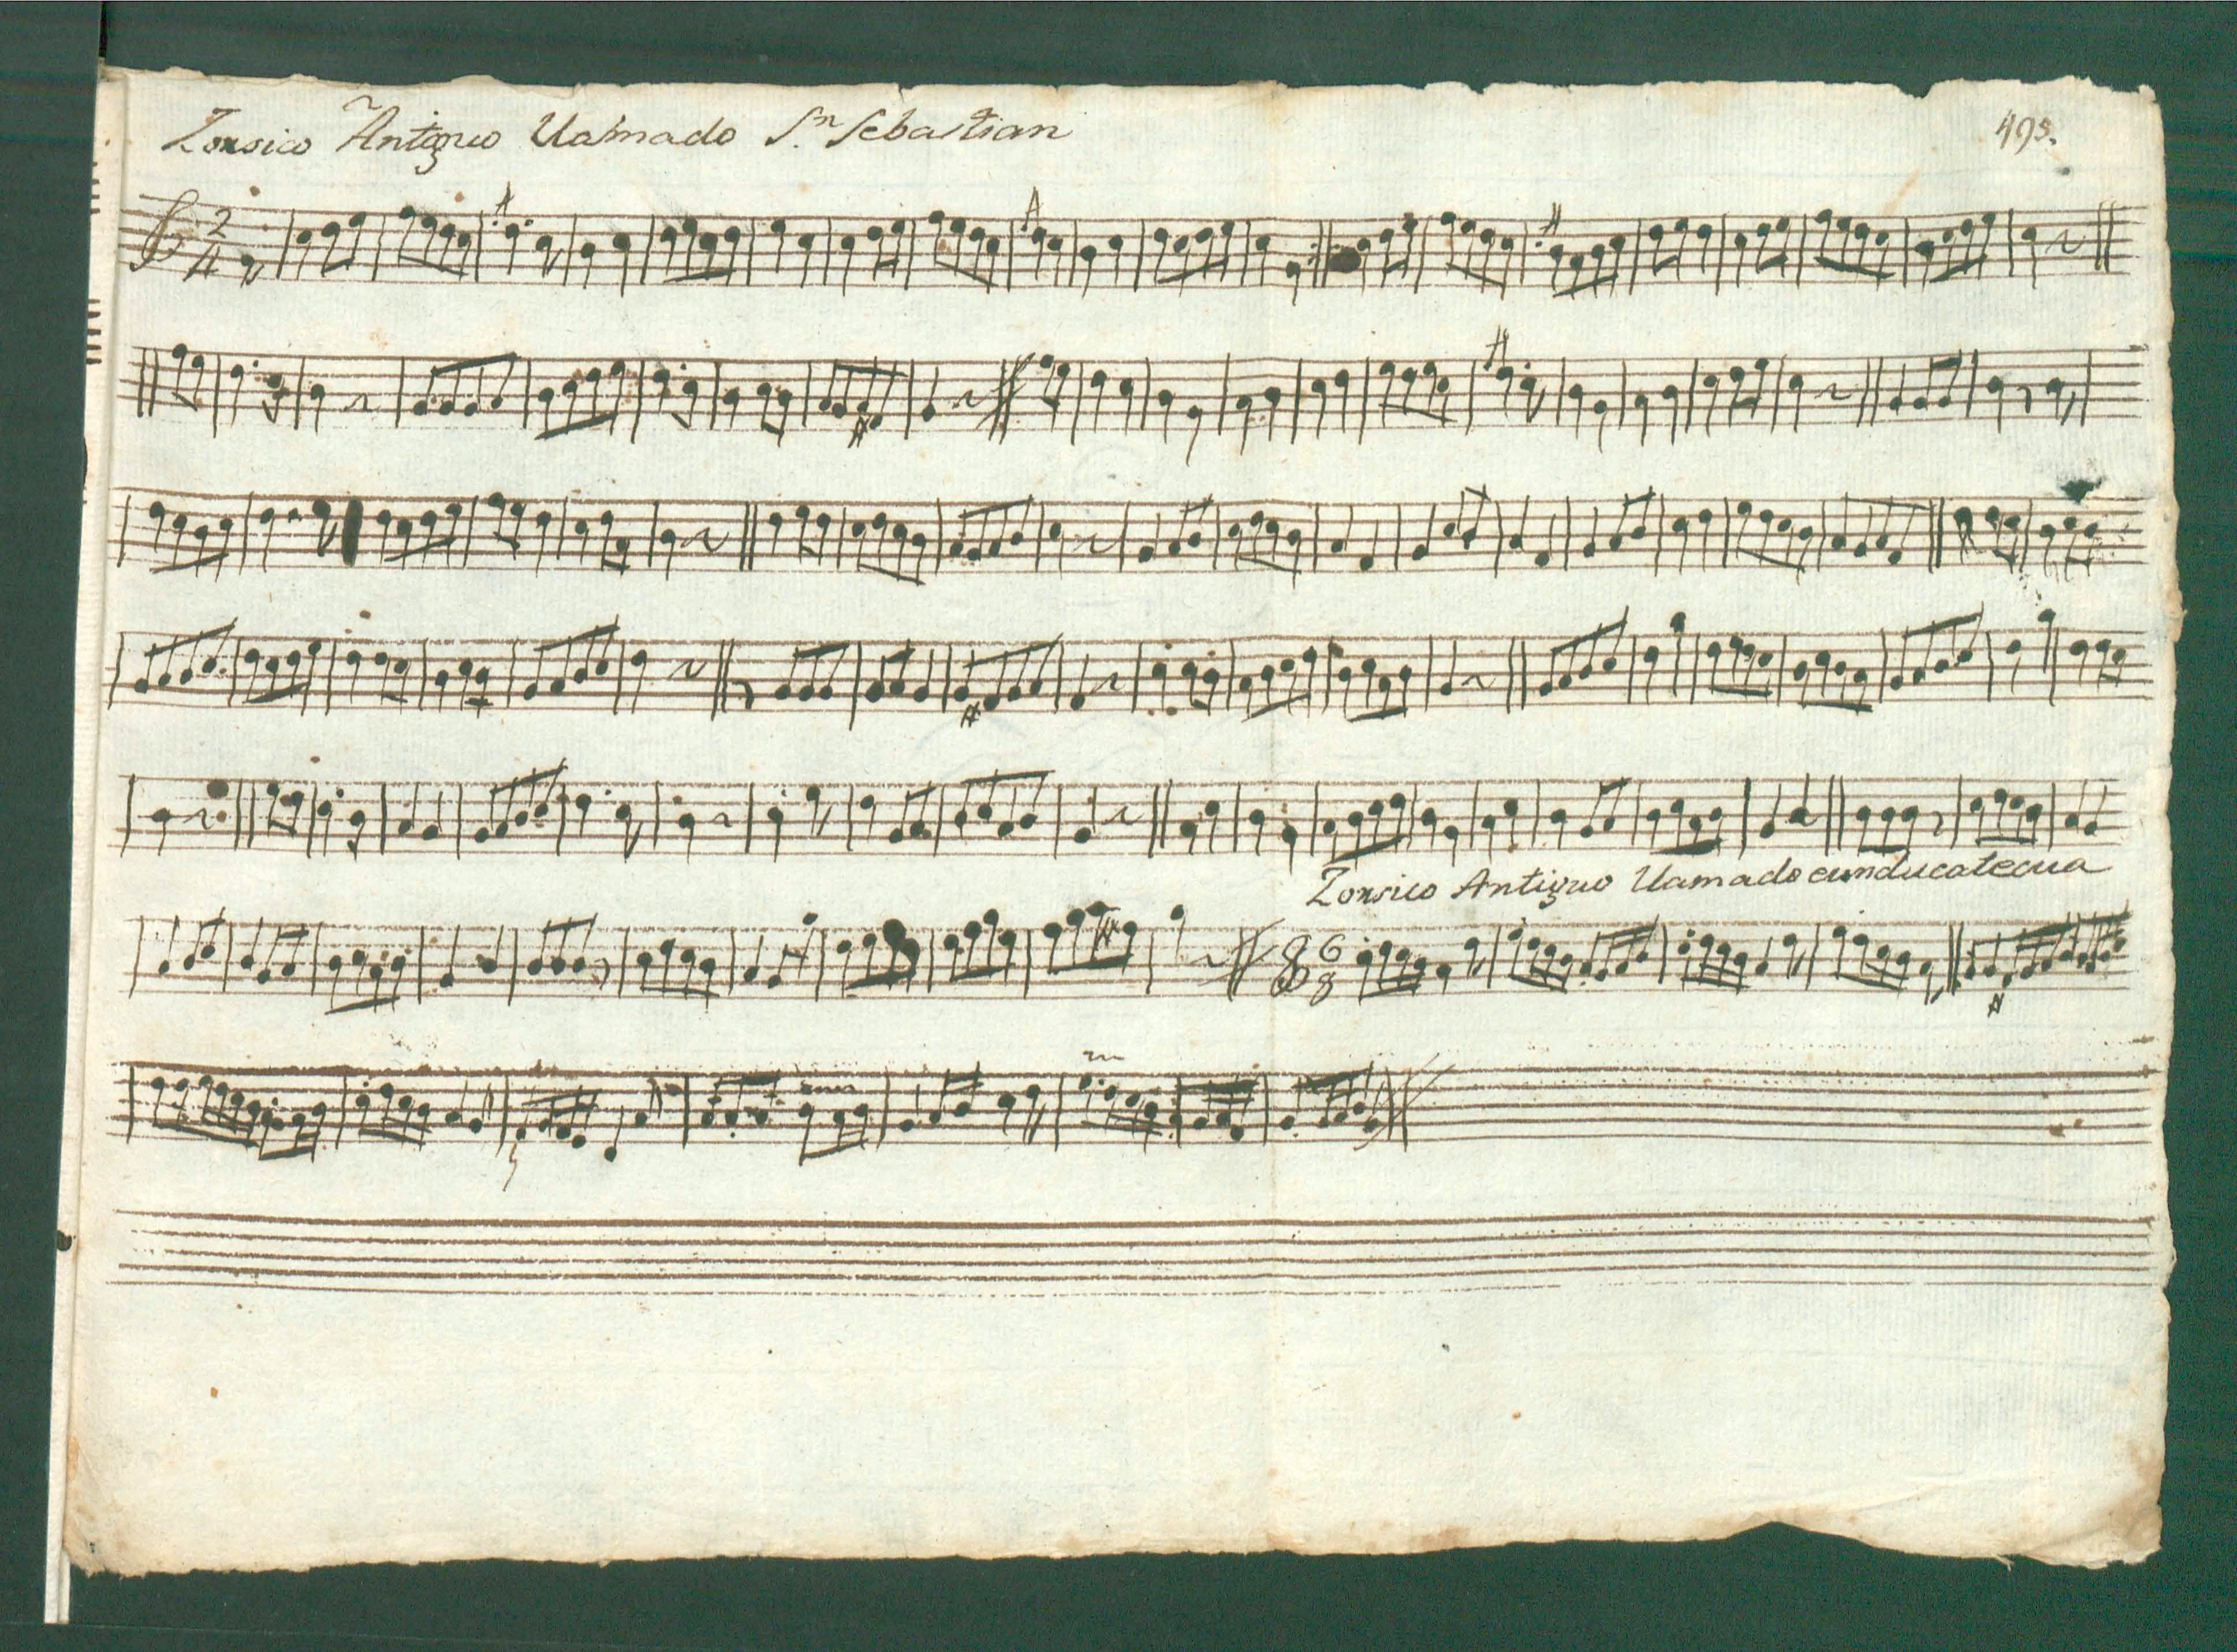 Zorsico Antiguo llamado S.n Sebastian
495.
2
4
Zorsico Antiguo llamado eunducatecua
6
8